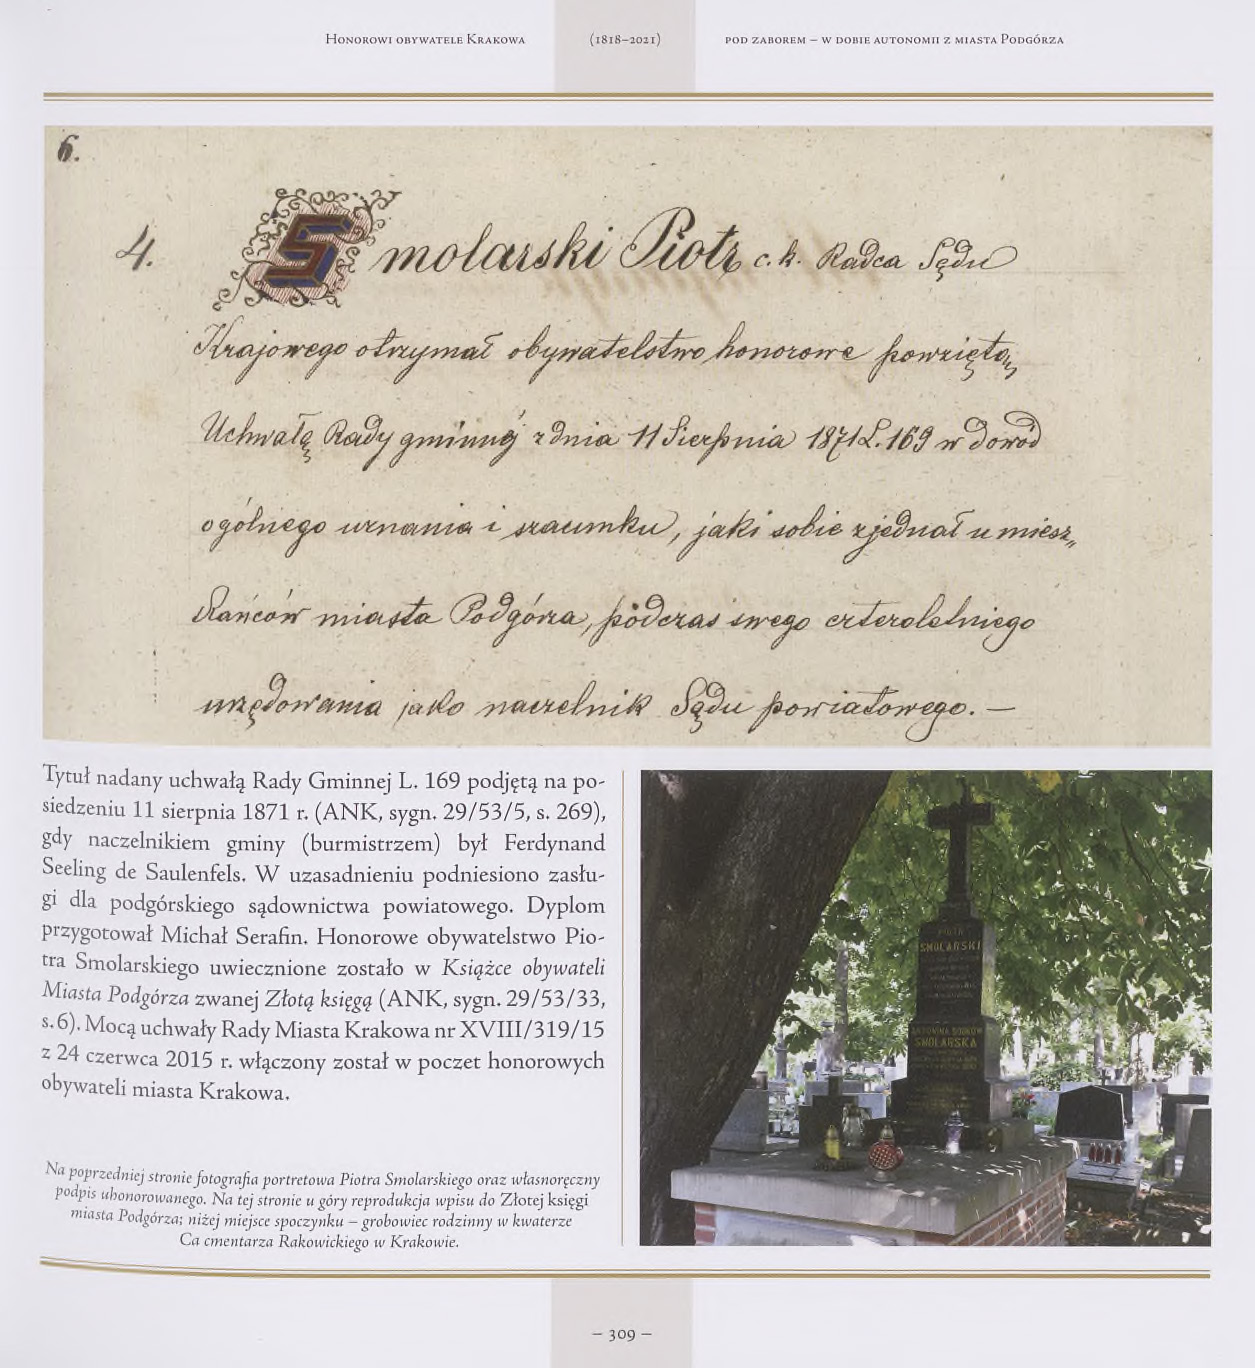 Honorowi obywatele Krakowa (1818–2021) pod zaborem – w dobie autonomii z miasta Podgórza
6.
4. Smolarski Piotr c. k. Radca Sędu
Krajowego otrzymał obywatelstwo honorowe powziętą
Uchwałą Rady gminnéj z dnia 11 Sierpnia 1871 L. 169 w dowód
ogólnego uznania i szacunku, jaki sobie zjednał u miesz„
kańców miasta Podgórza, podczas swego czteroletniego
urzędowania jako naczelnik Sądu powiatowego. —
Tytuł nadany uchwałą Rady Gminnej L. 169 podjętą na po-
siedzeniu 11 sierpnia 1871 r. (ANK, sygn. 29/53/5, s. 269),
gdy naczelnikiem gminy (burmistrzem) był Ferdynand
Seeling de Saulenfels. W uzasadnieniu podniesiono zasłu-
gi dla podgórskiego sądownictwa powiatowego. Dyplom
przygotował Michał Serafin. Honorowe obywatelstwo Pio-
tra Smolarskiego uwiecznione zostało w Książce obywateli
Miasta Podgórza zwanej Złotą księgą (ANK, sygn. 29/53/33,
s. 6). Mocą uchwały Rady Miasta Krakowa nr XVIII/319/15
z 24 czerwca 2015 r. włączony został w poczet honorowych
obywateli miasta Krakowa.
Na poprzedniej stronie fotografia portretowa Piotra Smolarskiego oraz własnoręczny
podpis uhonorowanego. Na tej stronie u góry reprodukcja wpisu do Złotej księgi
miasta Podgórza; niżej miejsce spoczynku – grobowiec rodzinny w kwaterze
Ca cmentarza Rakowickiego w Krakowie.
PIOTR
SMOLARSKI
SMOLARSKA
– 309 –